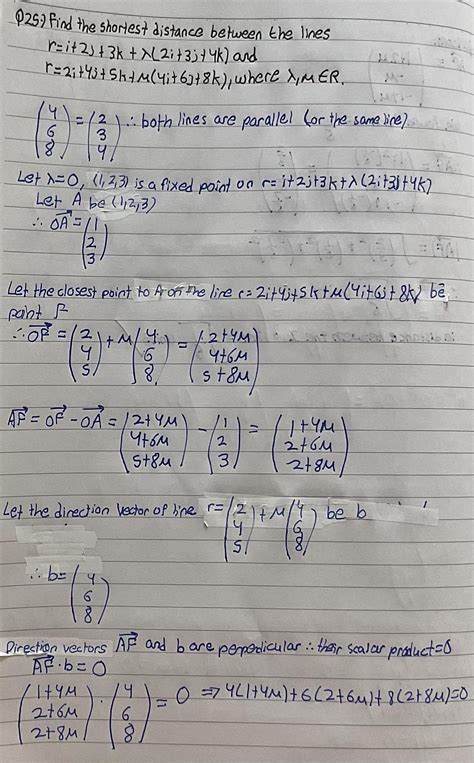 Q25:) Find the shortest distance between the lines
r=i+2j+3k+λ(2i+3j+4k) and
r=2i+4j+5k+μ(4i+6j+8k), where λ,μ∈R.
(4 6 8) = (2 3 4) ∴ both lines are parallel (or the same line)
Let λ=0, (1,2,3) is a fixed point on r=i+2j+3k+λ(2i+3j+4k)
Let A be (1,2,3)
∴ OA = (1 2 3)
Let the closest point to A on the line r=2i+4j+5k+μ(4i+6j+8k) be
point F
∴ OF = (2 4 5) + μ (4 6 8) = (2+4μ 4+6μ 5+8μ)
AF = OF - OA = (2+4μ 4+6μ 5+8μ) - (1 2 3) = (1+4μ 2+6μ -2+8μ)
Let the direction vector of line r= (2 4 5) + μ (4 6 8) be b
∴ b= (4 6 8)
Direction vectors AF and b are perpedicular ∴ their scalar product=0
AF · b = 0
(1+4μ 2+6μ 2+8μ) · (4 6 8) = 0 ⇒ 4(1+4μ)+6(2+6μ)+8(2+8μ)=0